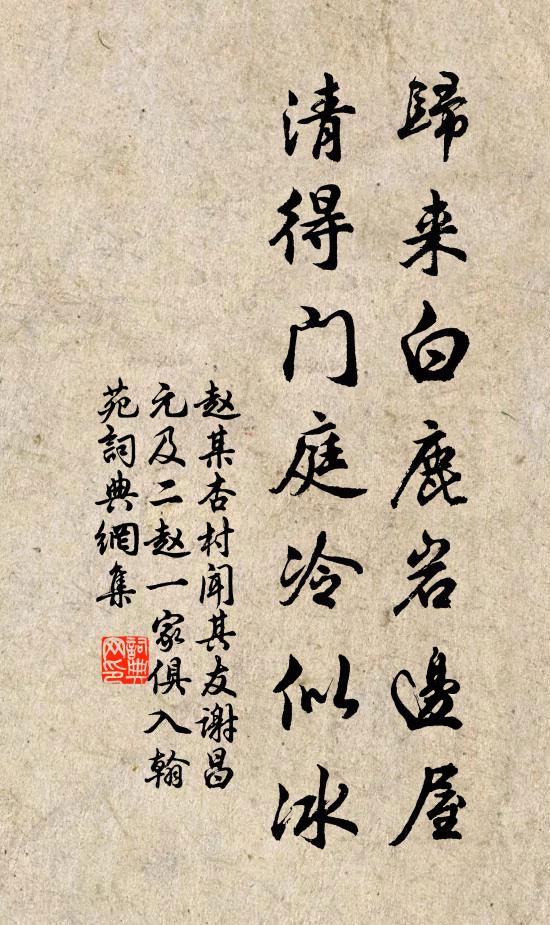 歸来白鹿岩邊屋
清得門庭冷似冰
赵某杏村闻其友谢昌
元及二赵一家俱入翰
苑詞典網集
詞典网印